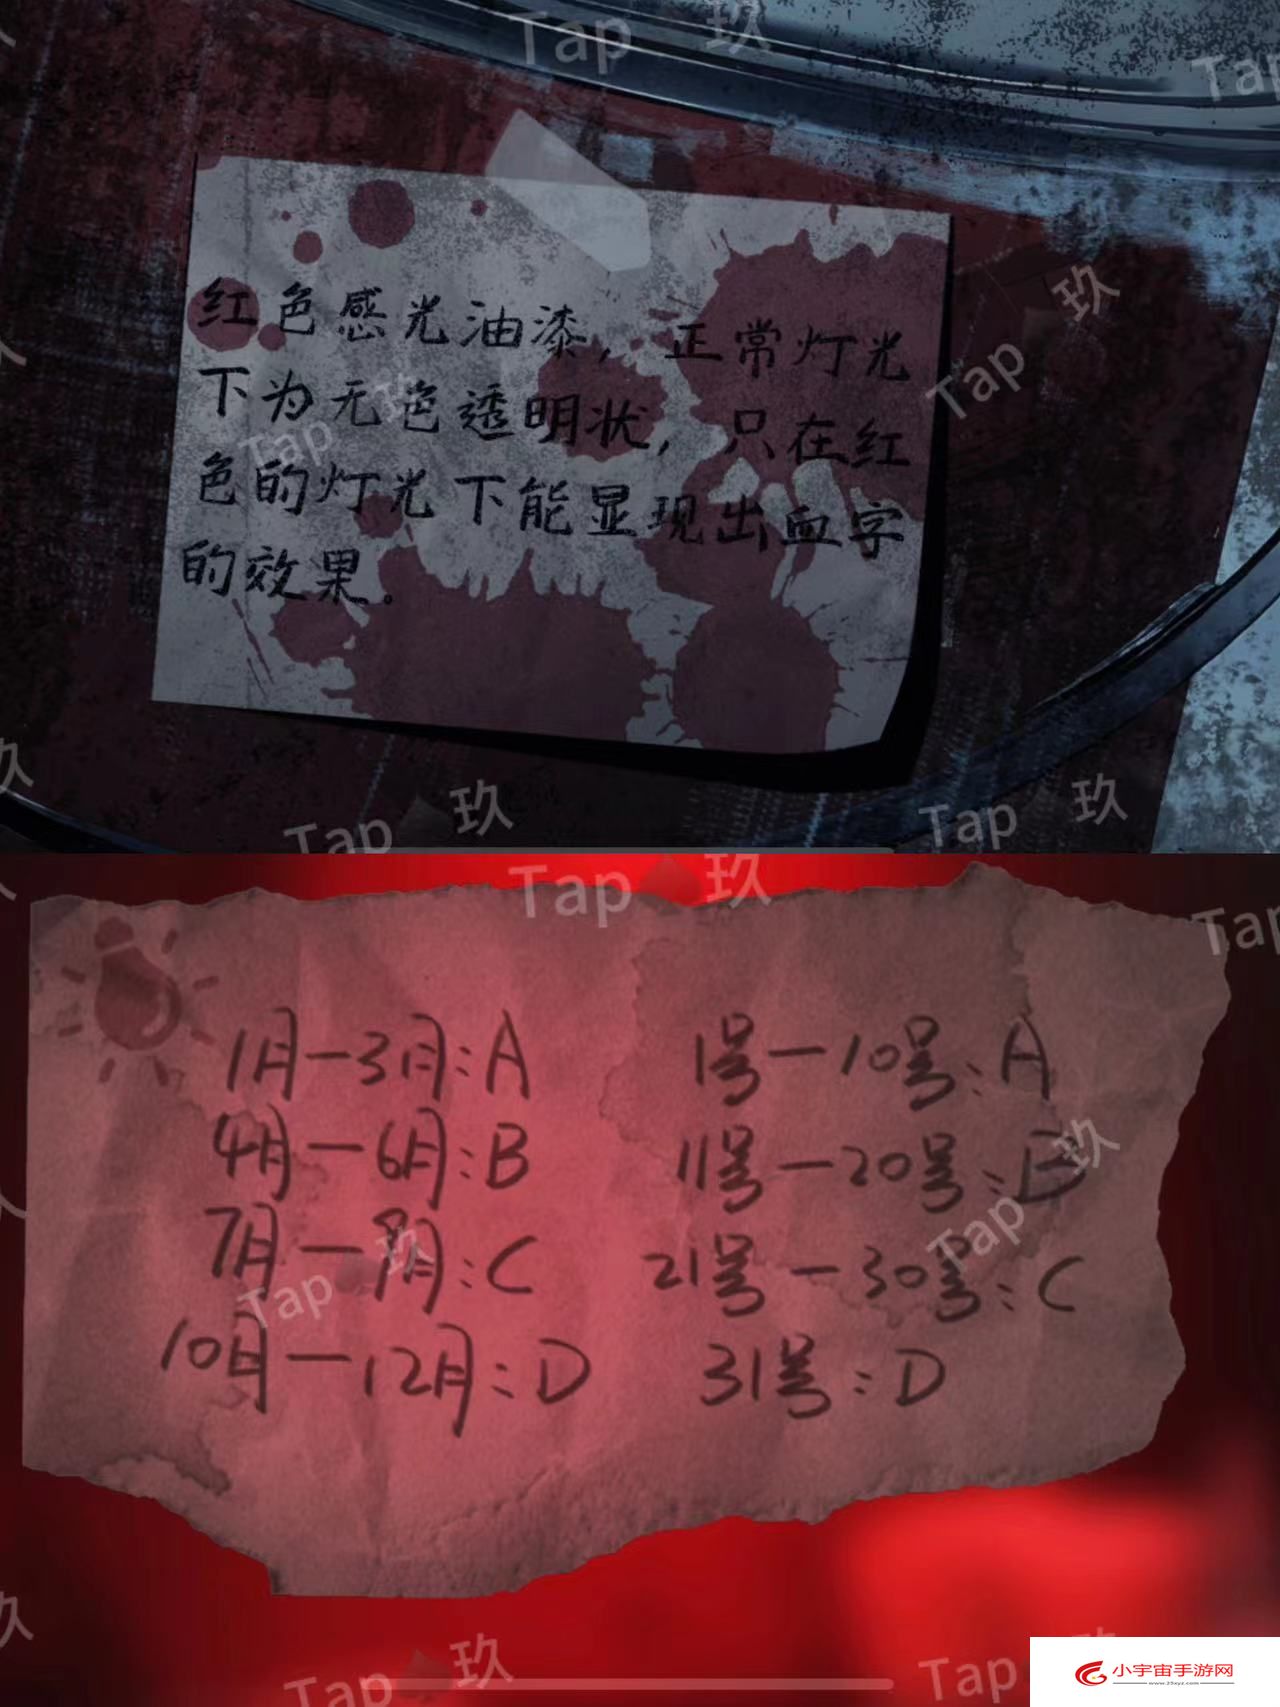 Tap 玖
Tap
玖
红色感光油漆，正常灯光
下为无色透明状，只在红
色的灯光下能显现出血字
的效果。
Tap 玖
Tap
玖
Tap 玖
Tap 玖
Tap 玖
Tap
1月—3月:A
4月—6月:B
7月—9月:C
10月—12月:D
1号—10号:A
11号—20号:B
21号—30号:C
31号:D
玖
Tap
Tap 玖
玖
Tap 玖
Tap
小宇宙手游网
www.25xyz.com